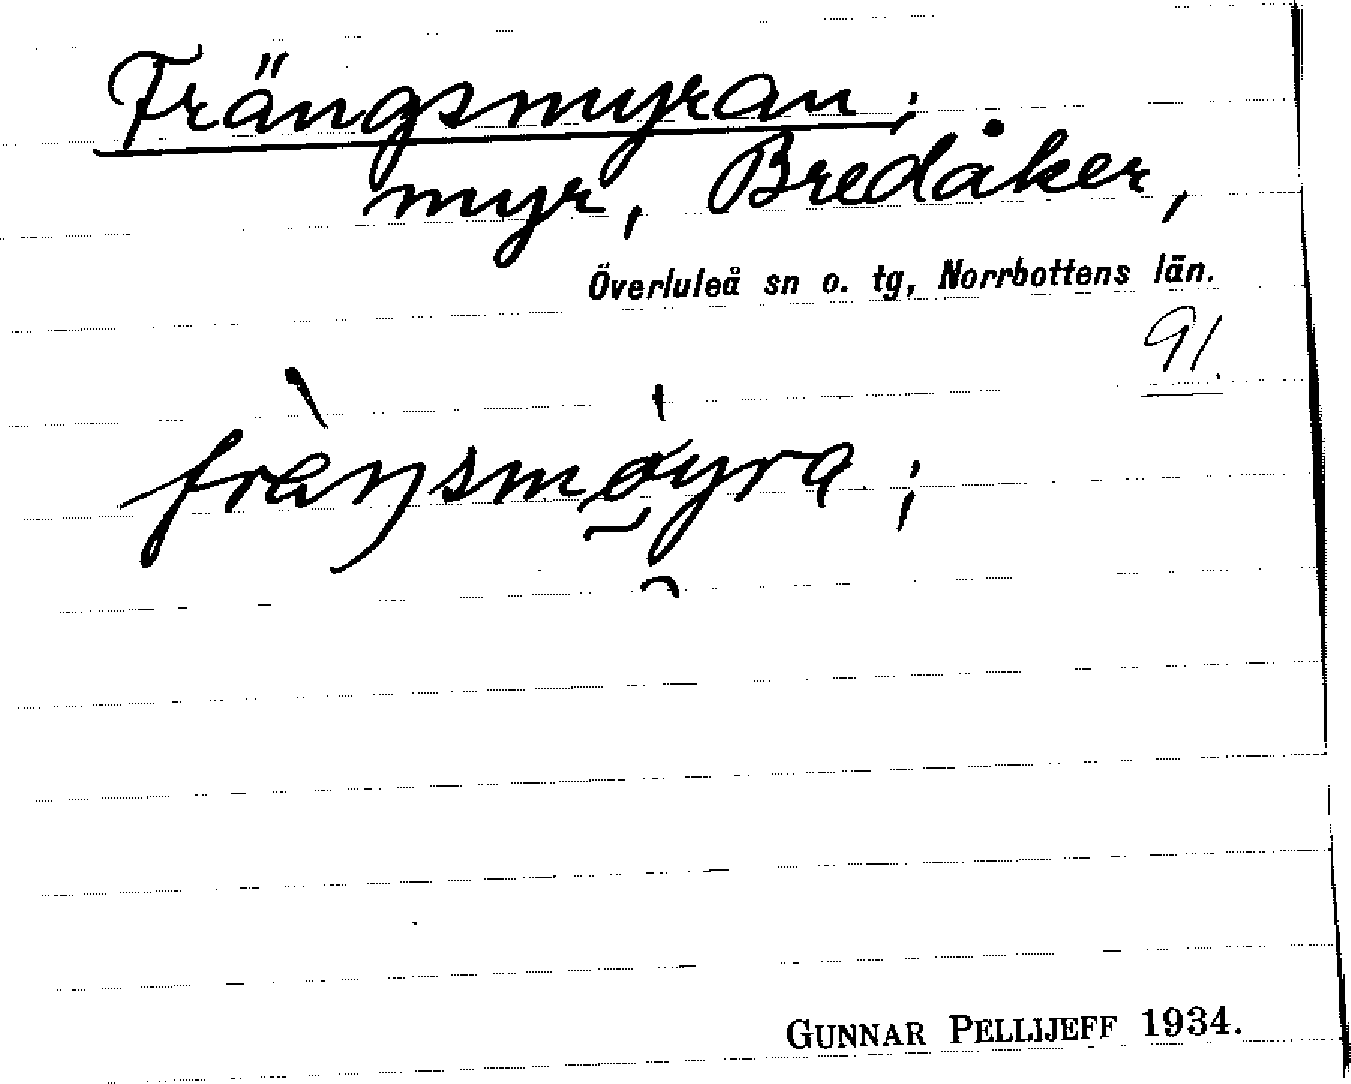 Frängsmyran;
myr, Bredåker,
Överluleå sn o. tg, Norrbottens län.
91.
GUNNAR PELLIJEFF 1934.